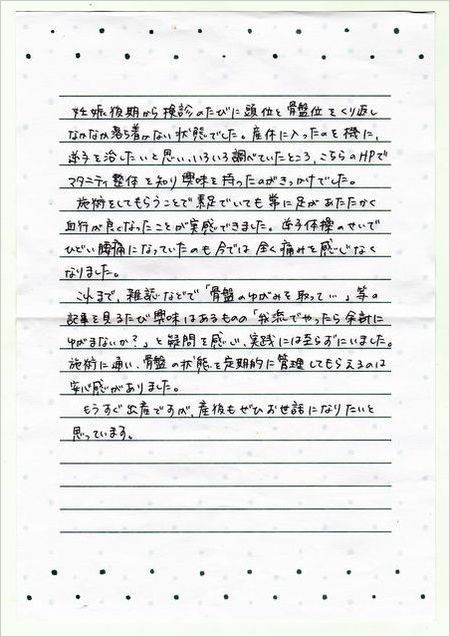 妊娠後期から検診のたびに頭位と骨盤位をくり返し
なかなか落ち着かない状態でした。産休に入ったのを機に、
逆子を治したいと思い、いろいろ調べていたところ、こちらのHPで
マタニティ整体を知り興味を持ったのがきっかけでした。
施術をしてもらうことで素足でいても常に足があたたかく
血行が良くなったことが実感できました。逆子体操のせいで
ひどい腰痛になっていたのも今では全く痛みを感じなく
なりました。
これまで、雑誌などで「骨盤のゆがみを取って…」等の
記事を見るたび興味はあるものの「我流でやったら余計に
ゆがまないか?」と疑問を感じ、実践には至らずにいました。
施術に通い、骨盤の状態を定期的に管理してもらえるのは
安心感がありました。
もうすぐ出産ですが、産後もぜひお世話になりたいと
思っています。